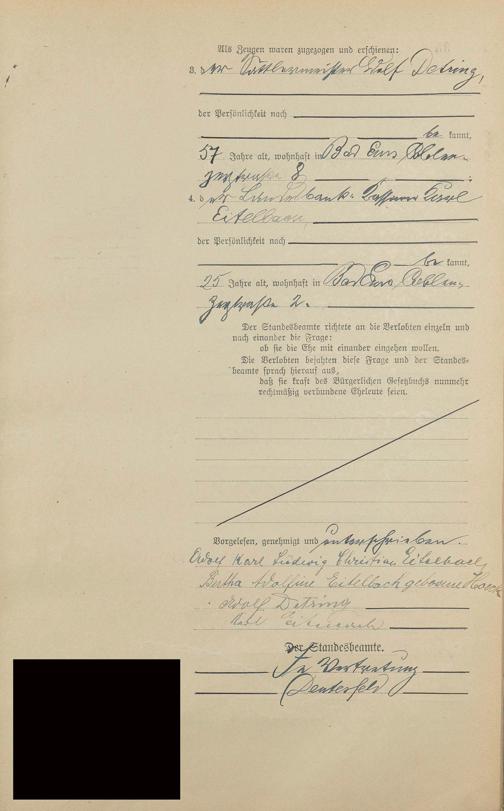 Als Zeugen waren zugezogen und erschienen:
3. der Sattlermeister Adolf Detring,
der Persönlichkeit nach
be kannt,
57 Jahre alt, wohnhaft in Bad Ems, Coblen-
zerstraße 8.
4. der Landesbank- Karl
Eitelbach,
der Persönlichkeit nach
be kannt,
25 Jahre alt, wohnhaft in Bad Ems, Coblen-
zerstraße 2.
Der Standesbeamte richtete an die Verlobten einzeln und
nach einander die Frage:
ob sie die Ehe mit einander eingehen wollen.
Die Verlobten bejahten diese Frage und der Standes-
beamte sprach hierauf aus,
daß sie kraft des Bürgerlichen Gesetzbuchs nunmehr
rechtmäßig verbundene Eheleute seien.
Vorgelesen, genehmigt und unterschrieben.
Adolf Karl Ludwig Christian Eitelbach
Bertha Adolfine Eitelbach geborene
Adolf Detring
Karl Eitelbach
Der Standesbeamte.
In Vertretung